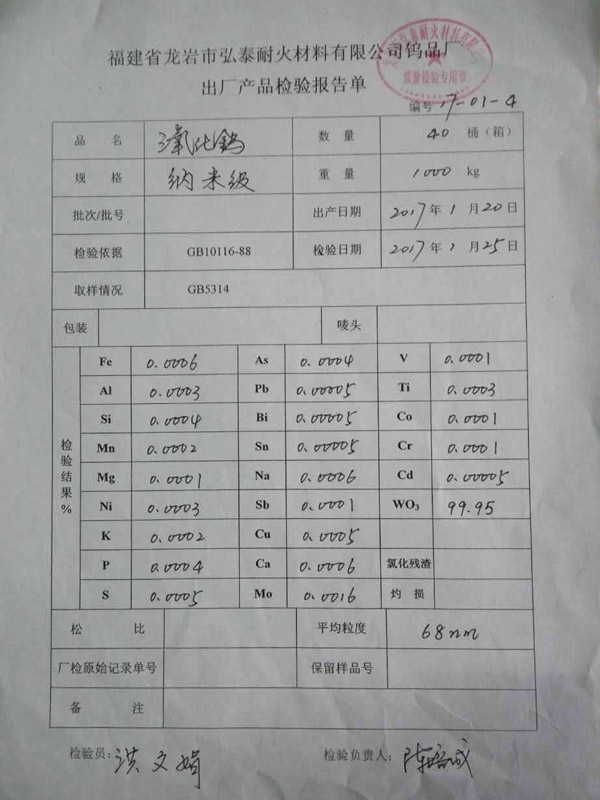 福建省龙岩市弘泰耐火材料有限公司钨品厂
泰耐火材料有限公
质量检验专用章
出厂产品检验报告单
编号 17-01-4
品 名 氧化钨 数 量 40 桶（箱）
规 格 纳米级 重 量 1000 kg
批次/批号 出产日期 2017年1月20日
检验依据 GB10116-88 检验日期 2017年1月25日
取样情况 GB5314
包装 唛头
检验结果%
Fe 0.0006 As 0.0004 V 0.0001
Al 0.0003 Pb 0.00005 Ti 0.0003
Si 0.0004 Bi 0.00005 Co 0.0001
Mn 0.0002 Sn 0.00005 Cr 0.0001
Mg 0.0001 Na 0.0006 Cd 0.00005
Ni 0.0003 Sb 0.0001 WO₃ 99.95
K 0.0002 Cu 0.0005
P 0.0004 Ca 0.0006 氯化残渣
S 0.0005 Mo 0.0016 灼 损
松 比 平均粒度 68nm
厂检原始记录单号 保留样品号
备 注
检验员：洪文娟 检验负责人：陈